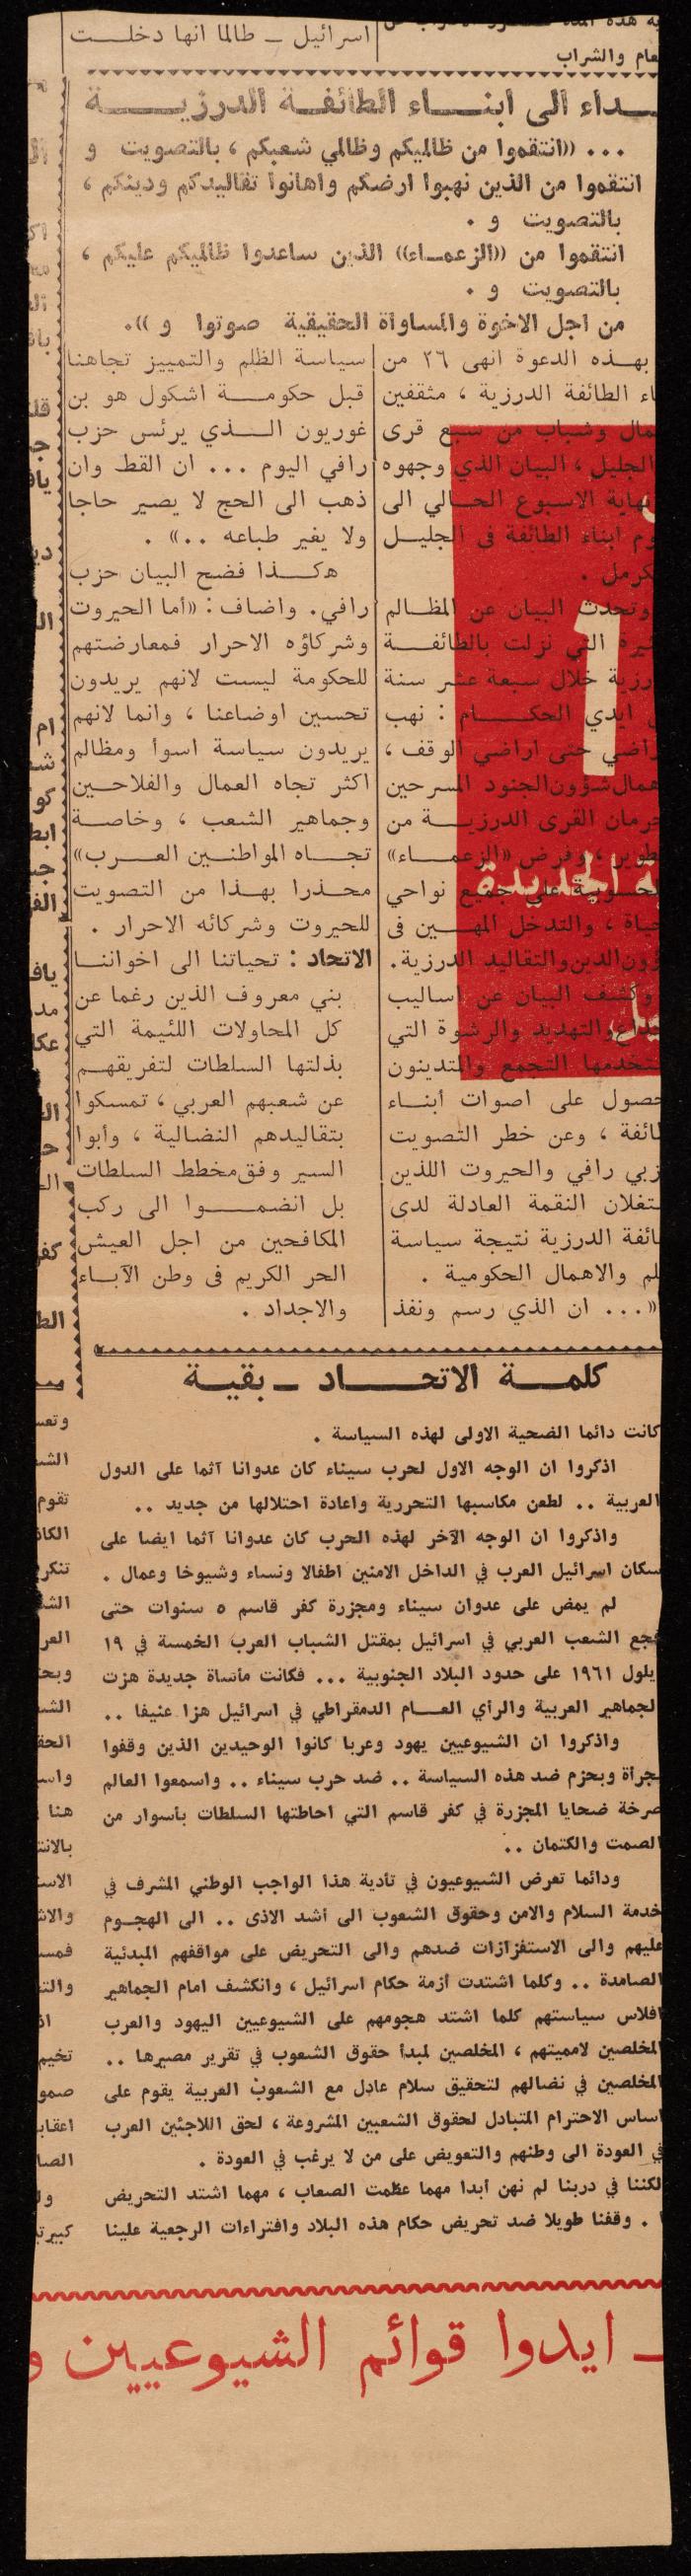 اسرائيل ــ طالما انها دخلت
عام والشراب
ـداء الى ابناء الطائفة الدرزية
... ((انتقموا من ظالميكم وظالمي شعبكم ، بالتصويت و
انتقموا من الذين نهبوا ارضكم واهانوا تقاليدكم ودينكم ،
بالتصويت و .
انتقموا من ((الزعماء)) الذين ساعدوا ظالميكم عليكم ،
بالتصويت و .
من اجل الاخوة والمساواة الحقيقية صوتوا و )).
بهذه الدعوة انهى ٢٦ من
ـاء الطائفة الدرزية ، مثقفين
ـمال وشباب من سبع قرى
الجليل ، البيان الذي وجهوه
ـهاية الاسبوع الحالي الى
ـوم ابناء الطائفة في الجليل
ـكرمل .
وتحدث البيان عن المظالم
ـيرة التي نزلت بالطائفة
ـرزية خلال سبعة عشر سنة
ايدي الحكام : نهب
ـراضي حتى اراضي الوقف ،
ـهمال شؤون الجنود المسرحين
ـحرمان القرى الدرزية من
ـطوير ، وفرض «الزعماء»
ـحسوبية على جميع نواحي
ـحياة ، والتدخل المهين في
ـؤون الدين والتقاليد الدرزية .
وكشف البيان عن اساليب
ـداع والتهديد والرشوة التي
ـتخدمها التجمع والمتدينون
ـحصول على اصوات أبناء
ـائفة ، وعن خطر التصويت
ـزبي رافي والحيروت اللذين
ـتغلان النقمة العادلة لدى
ـائفة الدرزية نتيجة سياسة
ـلم والاهمال الحكومية .
«... ان الذي رسم ونفذ
سياسة الظلم والتمييز تجاهنا
قبل حكومة اشكول هو بن
غوريون الذي يرئس حزب
رافي اليوم ... ان القط وان
ذهب الى الحج لا يصير حاجا
ولا يغير طباعه ..» .
هكذا فضح البيان حزب
رافي. واضاف : «أما الحيروت
وشركاؤه الاحرار فمعارضتهم
للحكومة ليست لانهم يريدون
تحسين اوضاعنا ، وانما لانهم
يريدون سياسة اسوأ ومظالم
اكثر تجاه العمال والفلاحين
وجماهير الشعب ، وخاصة
تجاه المواطنين العرب»
محذرا بهذا من التصويت
للحيروت وشركائه الاحرار .
الاتحاد : تحياتنا الى اخواننا
بني معروف الذين رغما عن
كل المحاولات اللئيمة التي
بذلتها السلطات لتفريقهم
عن شعبهم العربي ، تمسكوا
بتقاليدهم النضالية ، وأبوا
السير وفق مخطط السلطات
بل انضموا الى ركب
المكافحين من اجل العيش
الحر الكريم في وطن الآباء
والاجداد .
كلمة الاتحاد ــ بقية
كانت دائما الضحية الاولى لهذه السياسة .
اذكروا ان الوجه الاول لحرب سيناء كان عدوانا آثما على الدول
العربية .. لطعن مكاسبها التحررية واعادة احتلالها من جديد ..
واذكروا ان الوجه الآخر لهذه الحرب كان عدوانا آثما ايضا على
سكان اسرائيل العرب في الداخل الامنين اطفالا ونساء وشيوخا وعمال .
لم يمض على عدوان سيناء ومجزرة كفر قاسم ٥ سنوات حتى
فجع الشعب العربي في اسرائيل بمقتل الشباب العرب الخمسة في ١٩
ـيلول ١٩٦١ على حدود البلاد الجنوبية ... فكانت مأساة جديدة هزت
الجماهير العربية والرأي العام الدمقراطي في اسرائيل هزا عنيفا ..
واذكروا ان الشيوعيين يهود وعربا كانوا الوحيدين الذين وقفوا
بجرأة وبحزم ضد هذه السياسة .. ضد حرب سيناء .. واسمعوا العالم
صرخة ضحايا المجزرة في كفر قاسم التي احاطتها السلطات بأسوار من
الصمت والكتمان ..
ودائما تعرض الشيوعيون في تأدية هذا الواجب الوطني المشرف في
خدمة السلام والامن وحقوق الشعوب الى أشد الاذى .. الى الهجوم
عليهم والى الاستفزازات ضدهم والى التحريض على مواقفهم المبدئية
الصامدة .. وكلما اشتدت أزمة حكام اسرائيل ، وانكشف امام الجماهير
افلاس سياستهم كلما اشتد هجومهم على الشيوعيين اليهود والعرب
المخلصين لامميتهم ، المخلصين لمبدأ حقوق الشعوب في تقرير مصيرها ..
المخلصين في نضالهم لتحقيق سلام عادل مع الشعوب العربية يقوم على
اساس الاحترام المتبادل لحقوق الشعبين المشروعة ، لحق اللاجئين العرب
في العودة الى وطنهم والتعويض على من لا يرغب في العودة .
لكننا في دربنا لم نهن أبدا مهما عظمت الصعاب ، مهما اشتد التحريض
. وقفنا طويلا ضد تحريض حكام هذه البلاد وافتراءات الرجعية علينا
ــ ايدوا قوائم الشيوعيين و